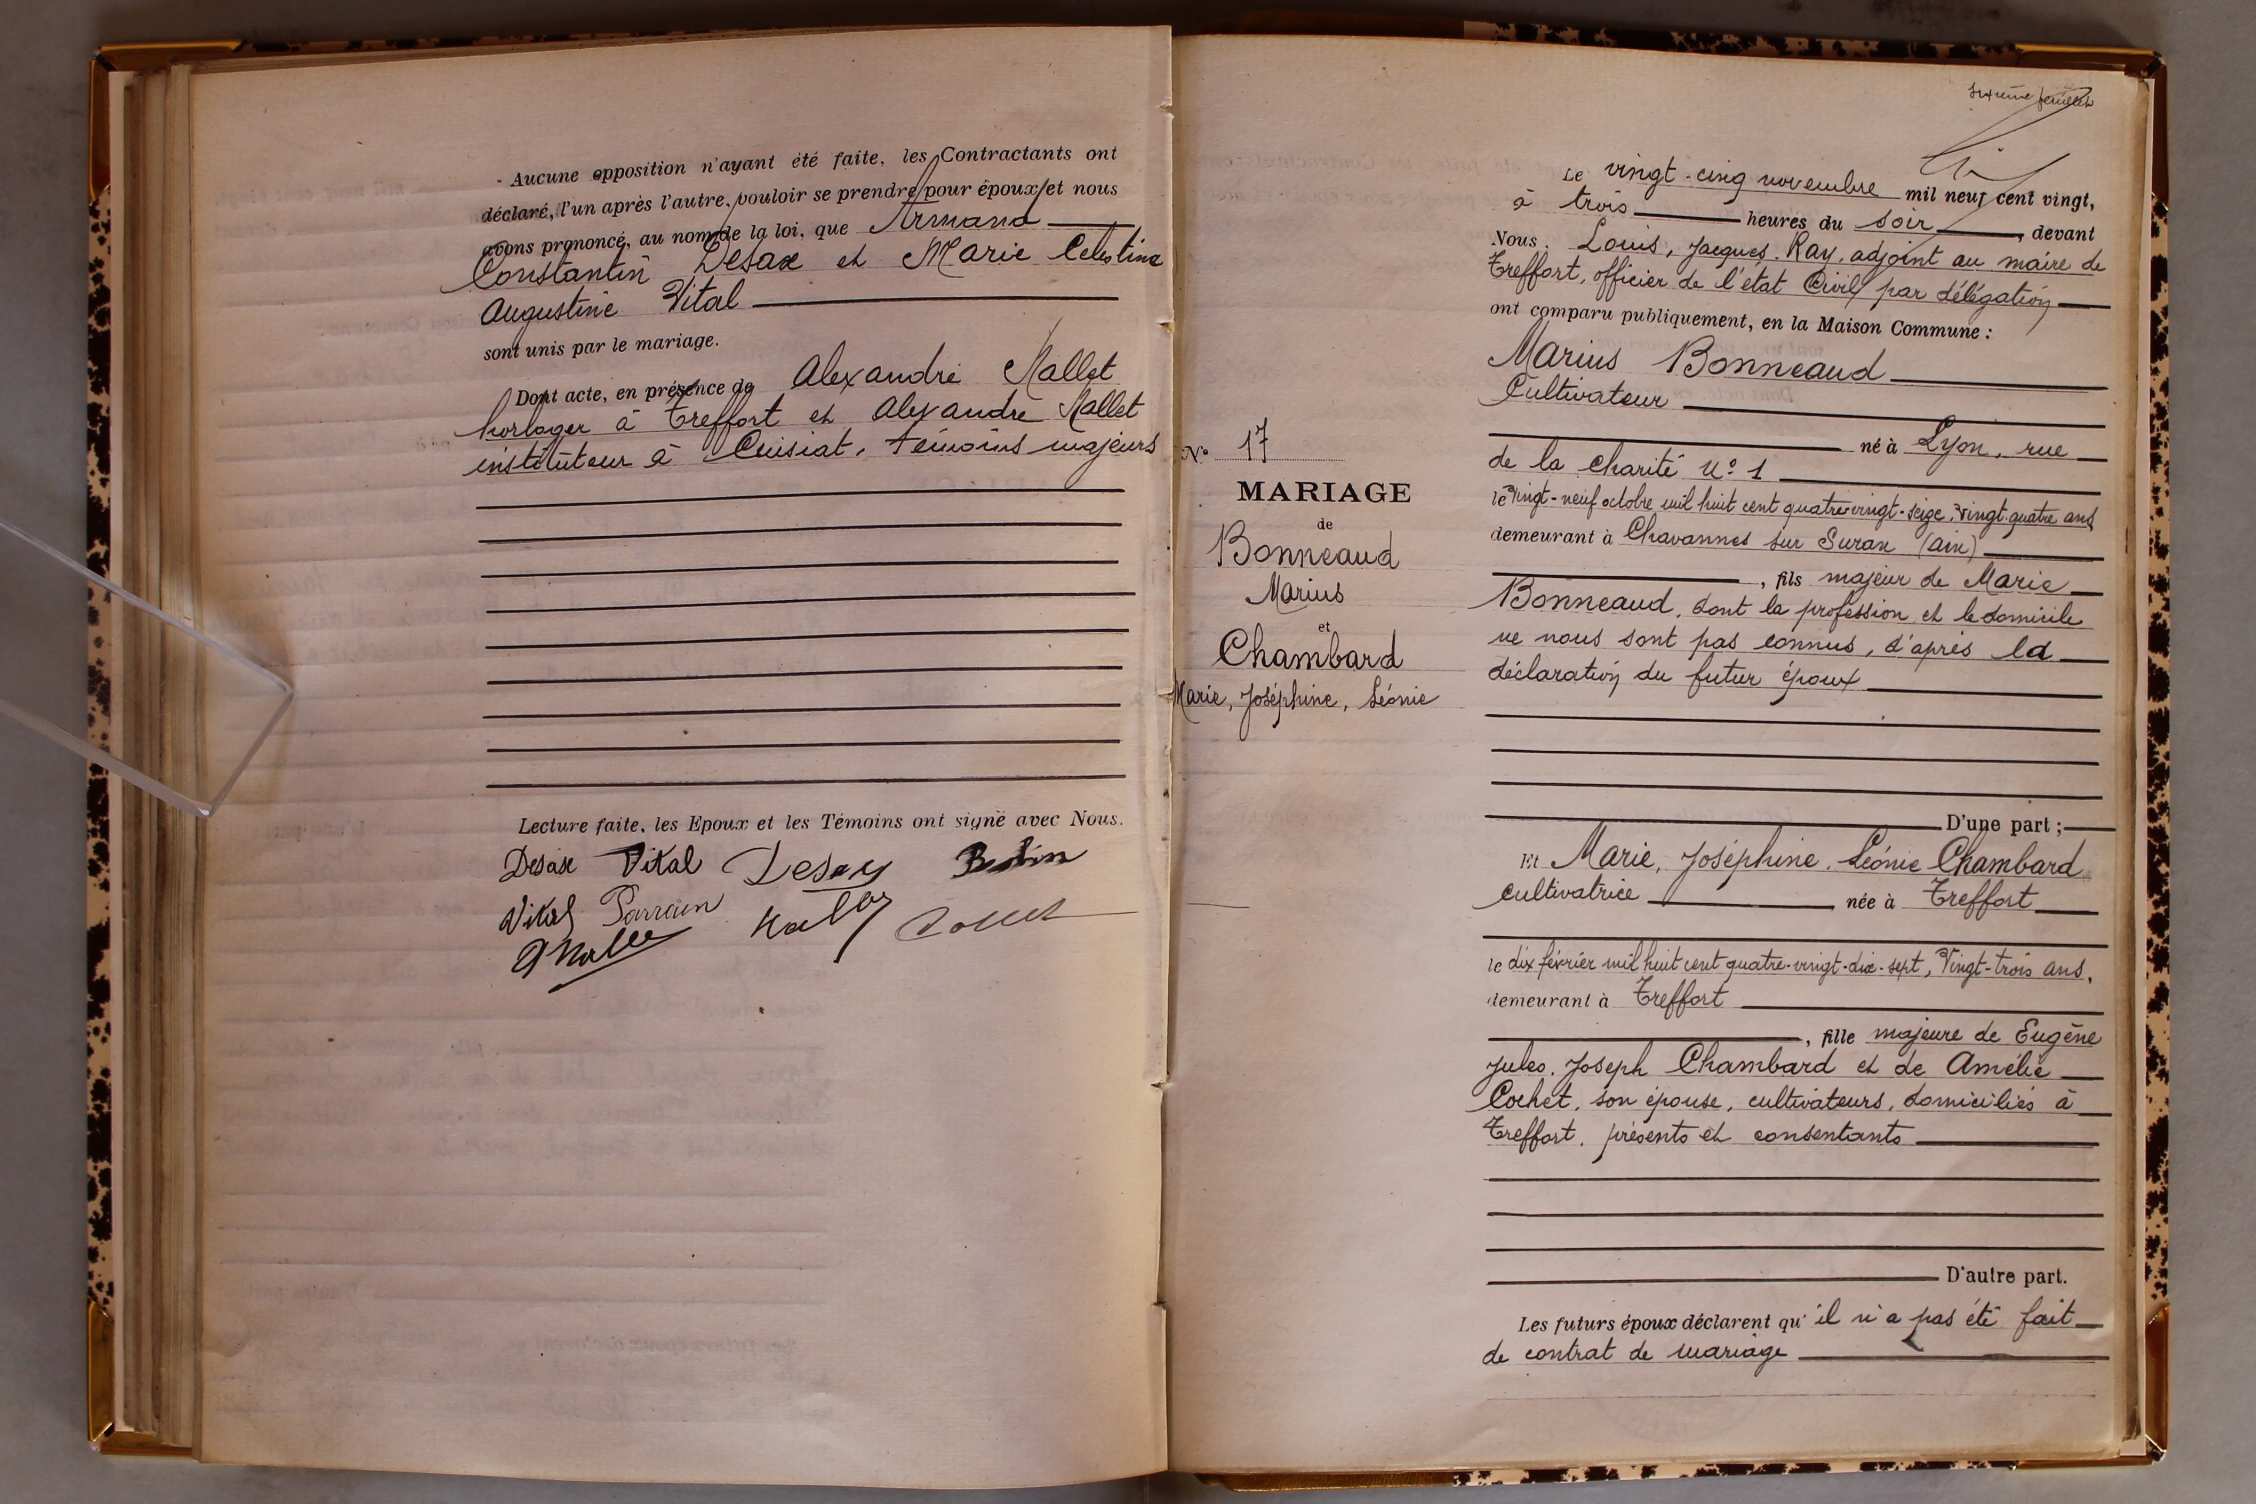 Aucune opposition n'ayant été faite, les Contractants ont
déclaré, l'un après l'autre, vouloir se prendre pour époux, et nous
avons prononcé, au nom de la loi, que Armand
Constantin Desax et Marie Celestine
Augustine Vital
sont unis par le mariage.
Dont acte, en présence de Alexandre Mallet
horloger à Treffort et Alexandre Mallet
instituteur à Cuisiat, témoins majeurs
Lecture faite, les Epoux et les Témoins ont signé avec Nous.
Desax Vital Desax
Vital
Mallet
feuillet
Le vingt-cinq novembre mil neuf cent vingt,
à trois heures du soir, devant
Nous, Louis, Jacques Ray, adjoint au maire de
Treffort, officier de l'état Civil par délégation
ont comparu publiquement, en la Maison Commune :
Marius Bonneaud
Cultivateur
né à Lyon, rue
de la charité N° 1
le Vingt-neuf octobre mil huit cent quatre-vingt-seize, Vingt-quatre ans
demeurant à Chavannes sur Suran (Ain)
, fils majeur de Marie
Bonneaud, dont la profession et le domicile
ne nous sont pas connus, d'après la
déclaration du futur époux
D'une part ;
N° 17
MARIAGE
de
Bonneaud
Marius
et
Chambard
Marie, Joséphine, Léonie
Et Marie, Joséphine, Léonie Chambard
cultivatrice née à Treffort
le dix février mil huit cent quatre-vingt-dix-sept, Vingt-trois ans,
demeurant à Treffort
, fille majeure de Eugène
Jules, Joseph Chambard et de Amélie
Cochet, son épouse, cultivateurs, domiciliés à
Treffort, présents et consentants
D'autre part.
Les futurs époux déclarent qu'il n'a pas été fait
de contrat de mariage